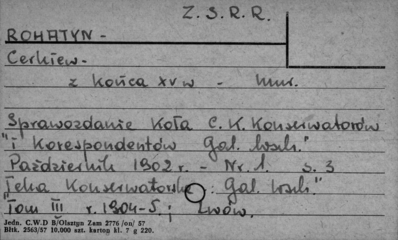 Z. S. R. R.
ROHATYN -
Cerkiew -
z końca XV w - mur.
Sprawozdanie Koła C. K. Konserwatorów
"i Korespondentów Gal. Wsch."
Październik 1902 r. - Nr. 1. s. 3
"Teka Konserwatorska: Gal. Wsch."
"Tom III r. 1904-5. ; Lwów.
Jedn. C.W.D B/Olsztyn Zam 2776 /on/ 57
Bltk. 2563/57 10.000 szt. karton kl. 7 g 220.